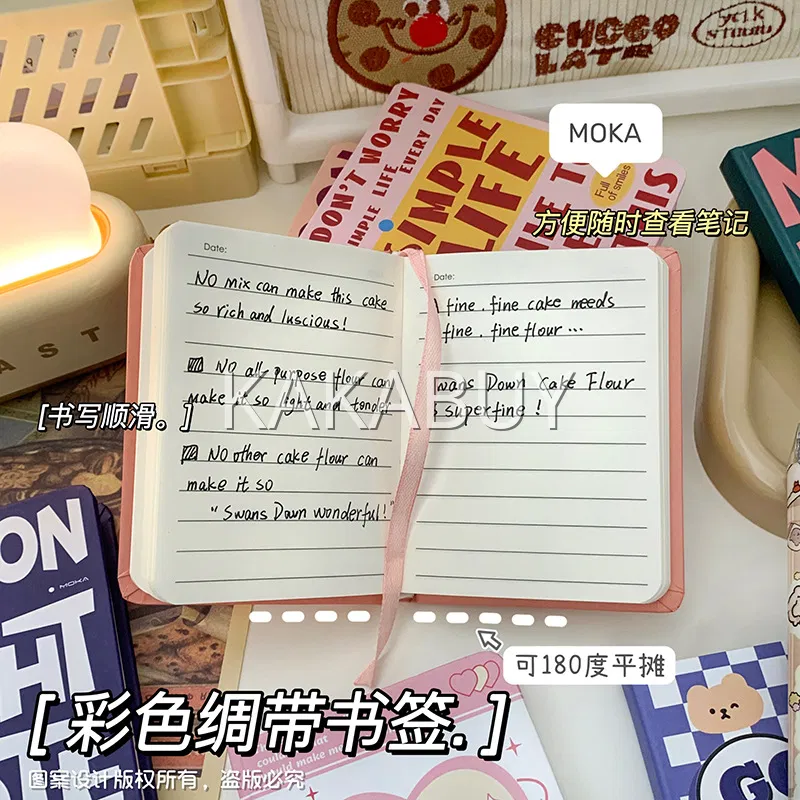 CHOCO
LATE
MOKA
DON'T WORRY
SIMPLE LIFE EVERY DAY
SIMPLE
LIFE
Full
of smiles
方便随时查看笔记
Date:
NO mix can make this cake
so rich and luscious!
NO all-purpose flour can
make it so light and tender
NO other cake flour can
make it so
"Swans Down wonderful!"
Date:
fine. fine cake needs
fine. fine flour...
Swans Down Cake Flour
superfine!
KAKABUY
[书写顺滑。]
AST
ON
MOKA
HT
可180度平摊
[彩色绸带书签.]
图案设计版权所有，盗版必究